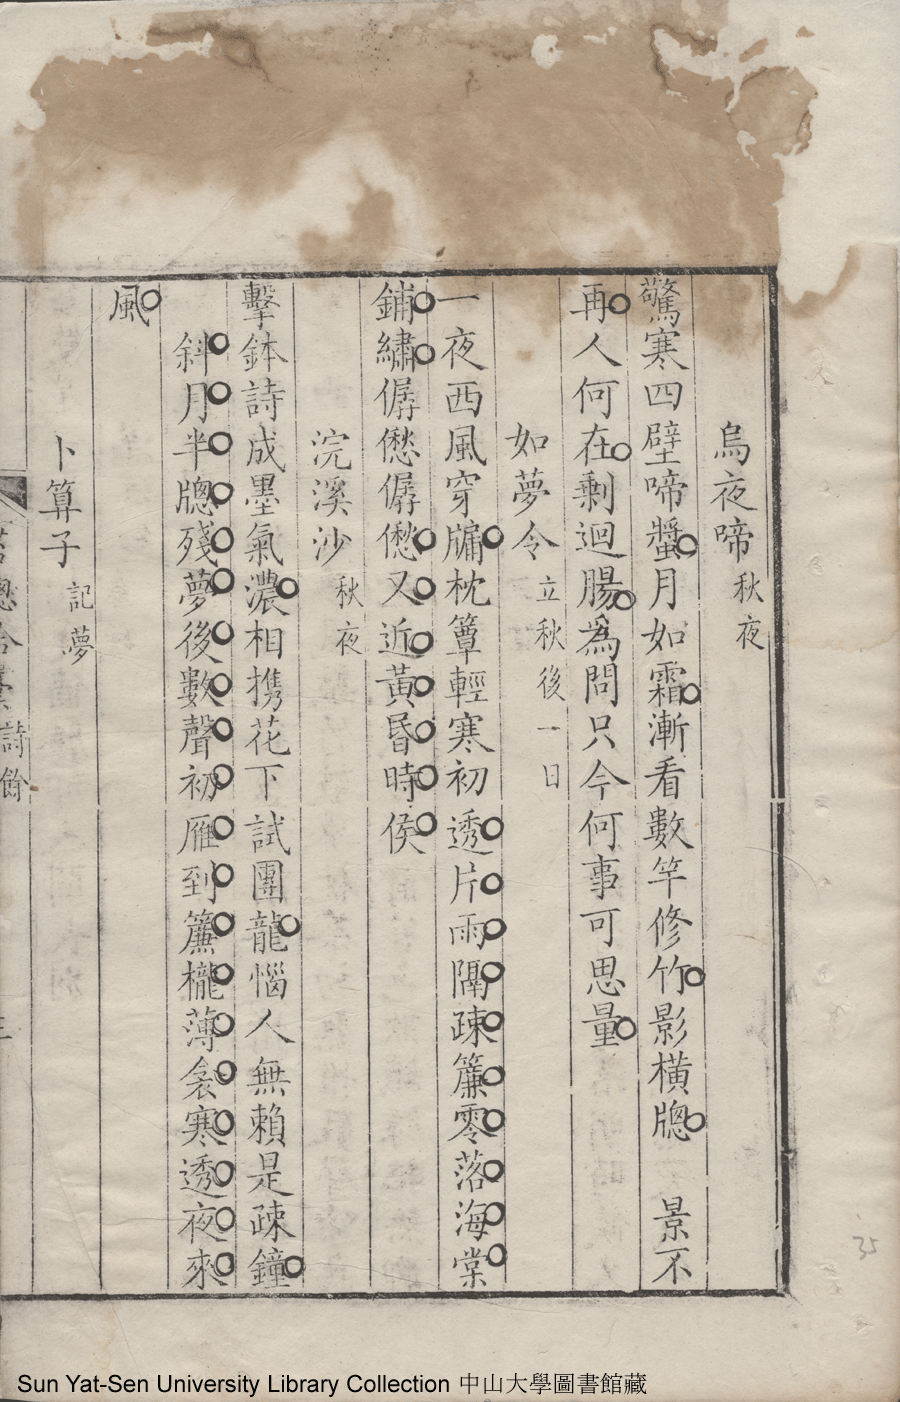 烏夜啼 秋夜
驚寒四壁啼螿月如霜漸看數竿修竹影橫牕 景不
再人何在剩迴腸為問只今何事可思量
如夢令 立秋後一日
一夜西風穿牖枕簟輕寒初透片雨隔疎簾零落海棠
鋪繡僝僽僝僽又近黃昏時侯
浣溪沙 秋夜
擊鉢詩成墨氣濃相攜花下試團龍惱人無賴是疎鐘
斜月半牕殘夢後數聲初雁到簾櫳薄衾寒透夜來
風
卜算子 記夢
詩餘
Sun Yat-Sen University Library Collection 中山大學圖書館藏
35